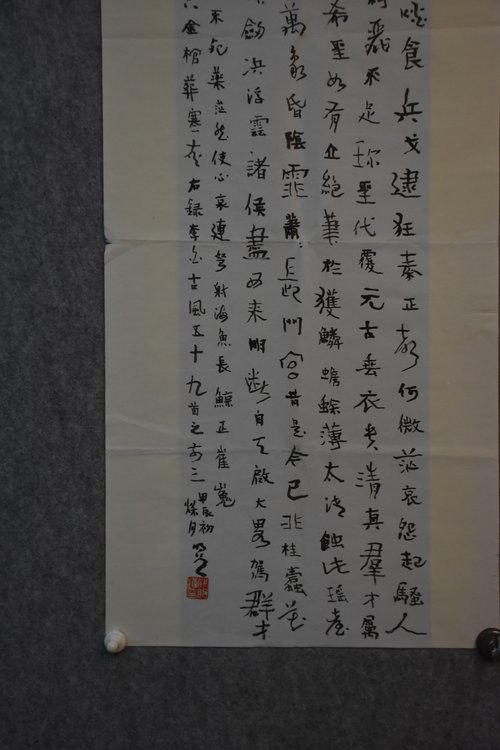 啖食兵戈逮狂秦正聲何微茫哀怨起騷人
麗不足珍聖代覆元古垂衣貴清真羣才屬
希聖如有立絕筆於獲麟蟾蜍薄太清蝕此瑤臺
萬象昏陰霏蕭：長門宮昔是今已非桂蠹花
劍決浮雲諸侯盡西來明斷自天啟大畧駕群才
不死藥茫然使心哀連弩射海魚長鯨正崔嵬
金棺葬寒灰右錄李白古風五十九首之前三
甲辰初
月